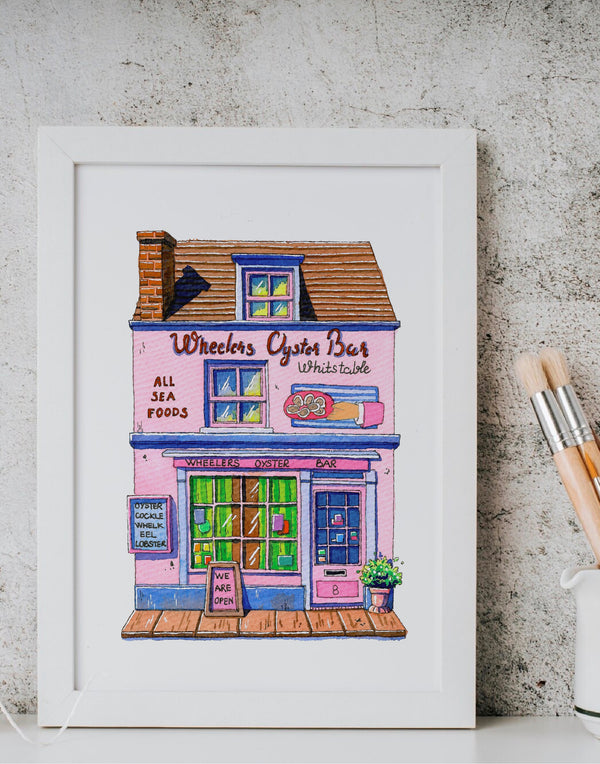 Wheelers Oyster Bar
Whitstable
ALL
SEA
FOODS
WHEELERS OYSTER BAR
OYSTER
COCKLE
WHELK
EEL
LOBSTER
WE
ARE
OPEN
8